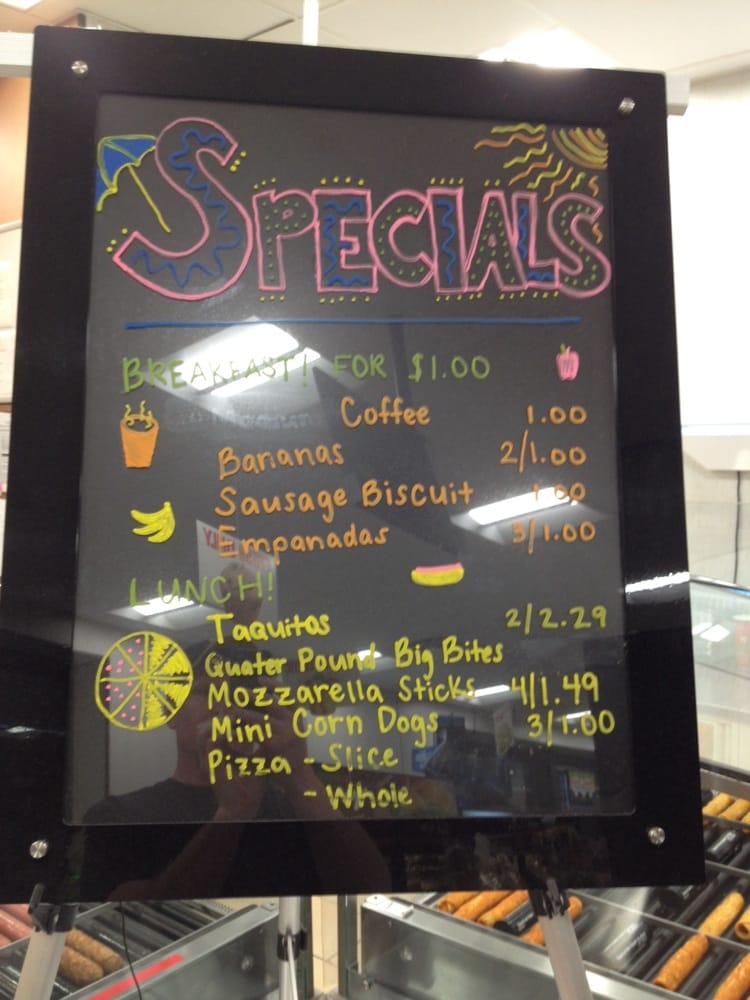 SPECIALS
BREAKFAST! FOR $1.00
Coffee 1.00
Bananas 2/1.00
Sausage Biscuit 1.00
Empanadas 3/1.00
LUNCH!
Taquitos 2/2.29
Quater Pound Big Bites
Mozzarella Sticks 4/1.49
Mini Corn Dogs 3/1.00
Pizza - Slice
- Whole